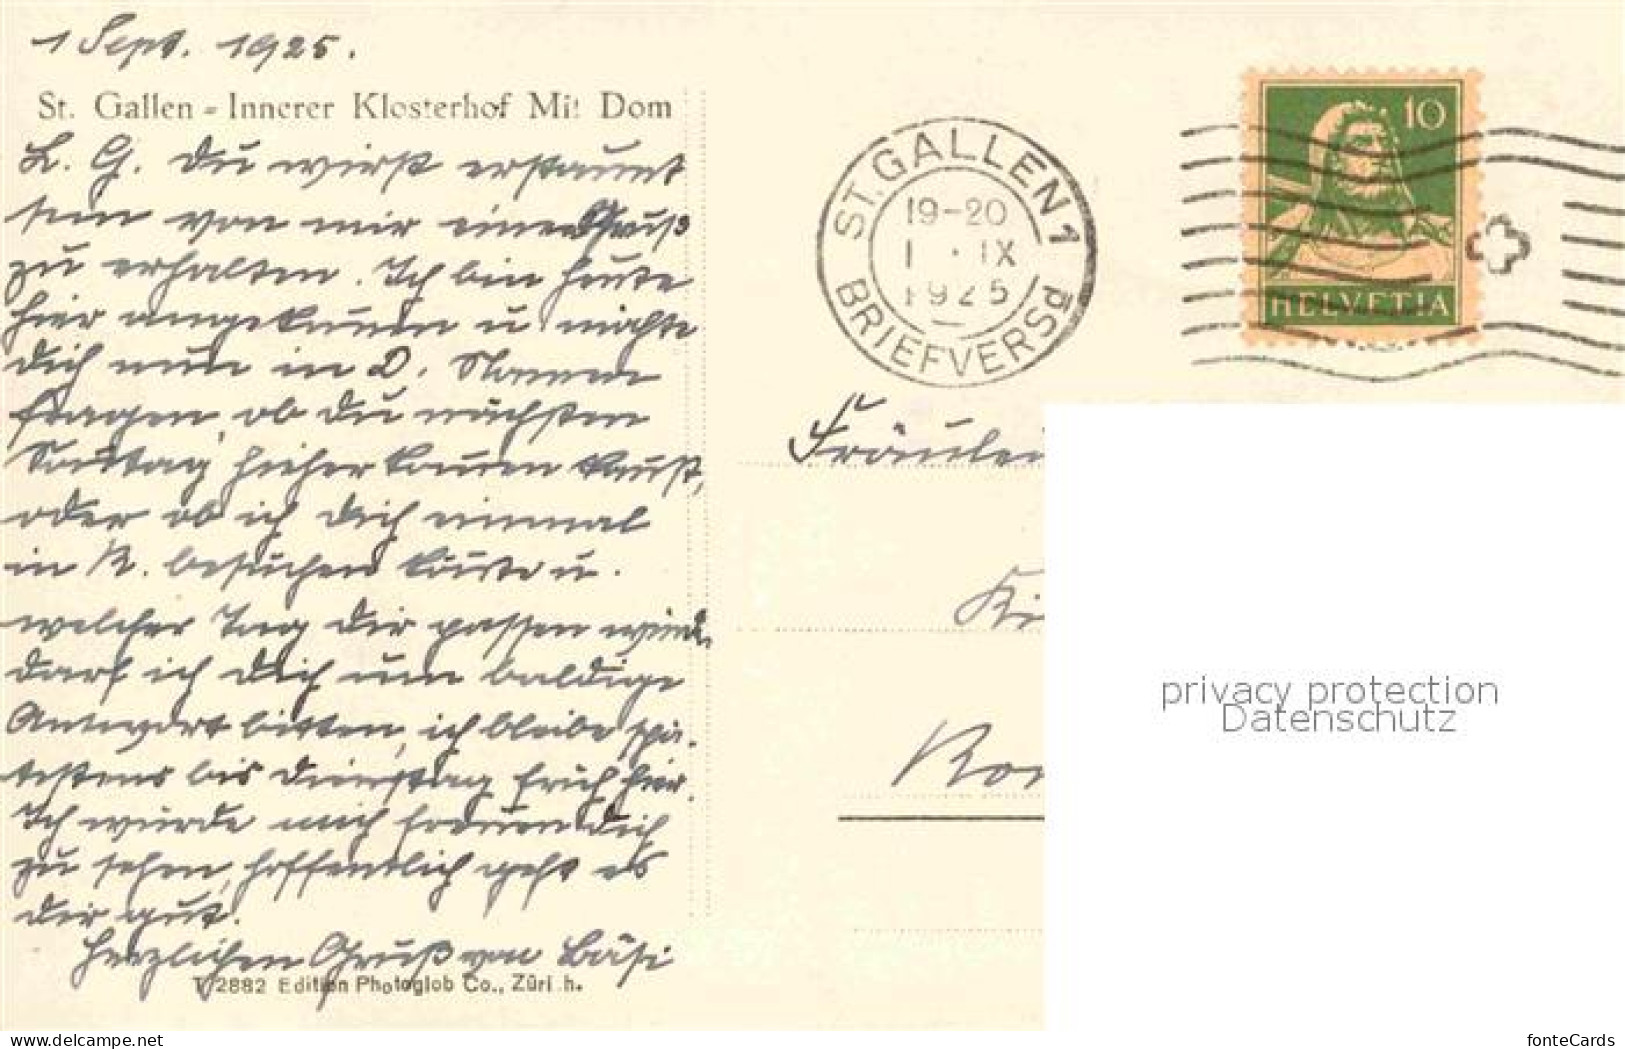 1 Sept. 1925.
St. Gallen - Innerer Klosterhof Mit Dom
L. G. Du wirst erstaunt
sein von mir einen Gruß
zu erhalten. Ich bin heute
hier angekommen u. möchte
Dich nun in D. Namen
fragen, ob Du nächsten
Sonntag hieher kommen kannst,
oder ob ich Dich einmal
in R. besuchen könnte u.
welcher Tag Dir passen würde,
darf ich Dich um baldige
Antwort bitten, ich bleibe spä-
testens bis Dienstag früh hier.
Ich würde mich freuen Dich
zu sehen, hoffentlich geht es
Dir gut.
Herzlichen Gruß von Bäsi
T 2882 Edition Photoglob Co., Züri h.
ST. GALLEN 1
19-20
1 . IX
1925
BRIEFVERSd
10
HELVETIA
Fräulei
Ki
Ror
privacy protection
Datenschutz
www.delcampe.net
fonteCards